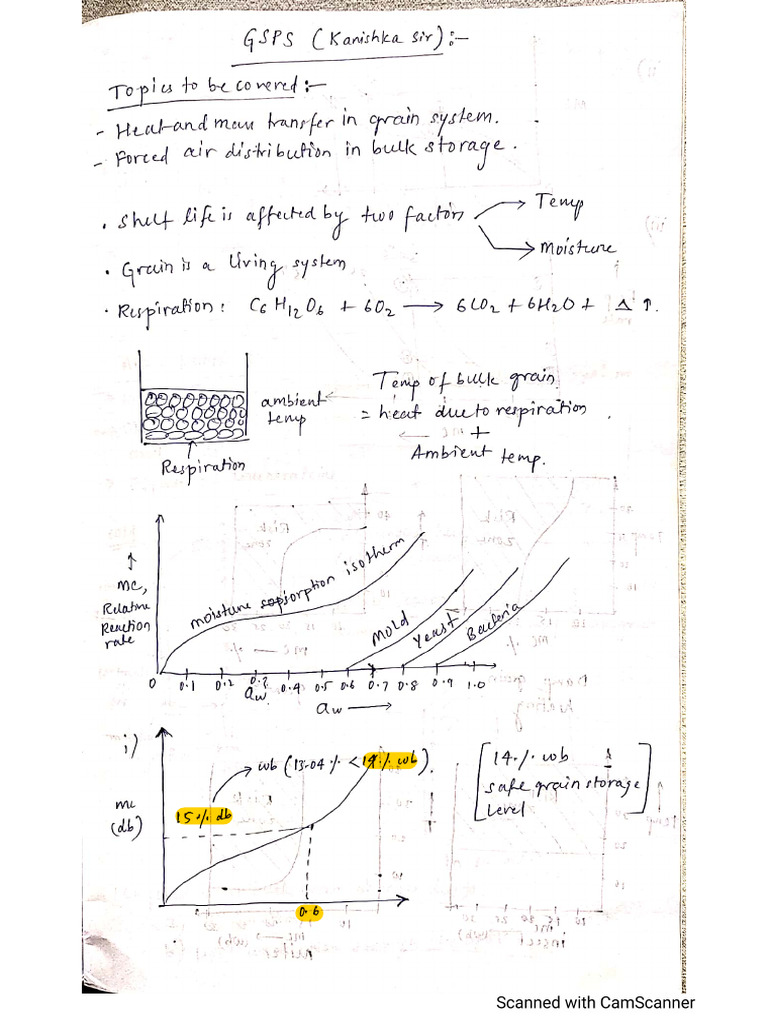 GSPS (Kanishka Sir):-
Topics to be covered:-
- Heat and mass transfer in grain system.
- Forced air distribution in bulk storage.
• Shelf life is affected by two factors
Temp
Moisture
• Grain is a living system
• Respiration: C6H12O6 + 6O2 → 6CO2 + 6H2O + Δ ↑.
ambient temp
Respiration
Temp of bulk grain
= heat due to respiration
+
Ambient temp.
↑
mc,
Relative
Reaction
rate
moisture sorption isotherm
Mold
Yeast
Bacteria
0 0.1 0.2 0.3 0.4 0.5 0.6 0.7 0.8 0.9 1.0
aw
aw →
i)
mc
(db)
15% db
wb (13.04% < 14% wb).
0.6
[14% wb
safe grain storage
Level]
Scanned with CamScanner